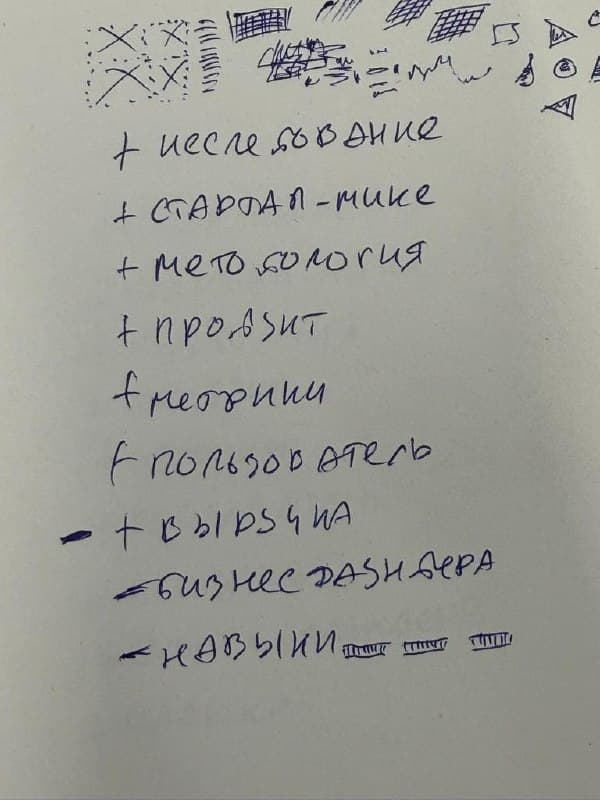 + исследование
+ стартап-мике
+ методология
+ продукт
+ метрики
+ пользователь
- + выручка
- бизнес фаундера
- навыки